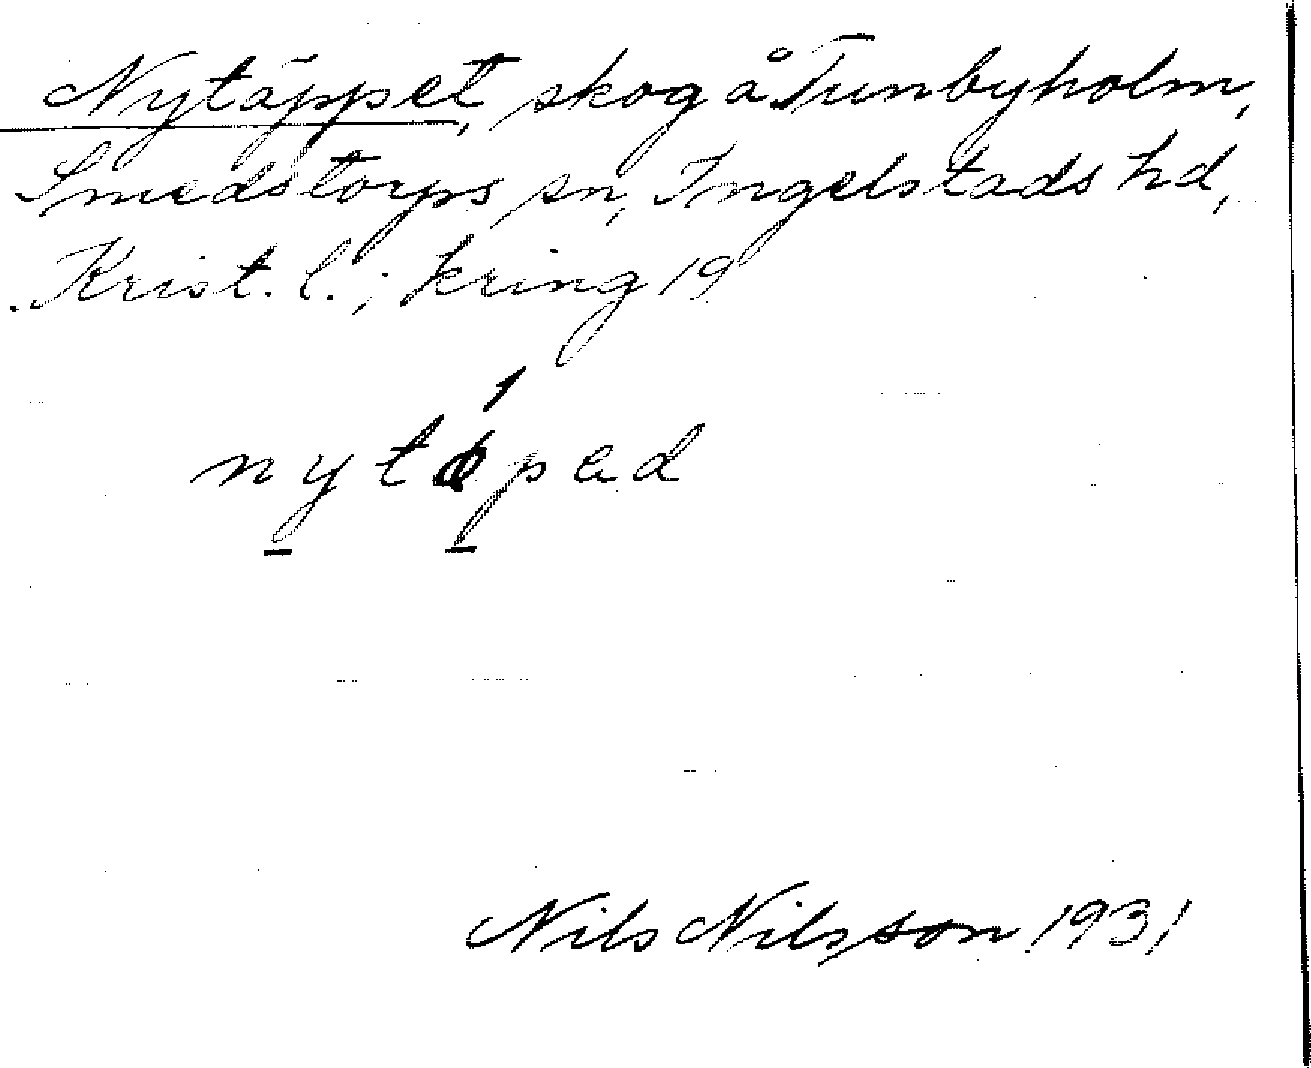 Nytäppet, skog å Tunbyholm,
Smedstorps sn, Ingelstads hd,
Krist. l.; kring 19
Nils Nilsson 1931